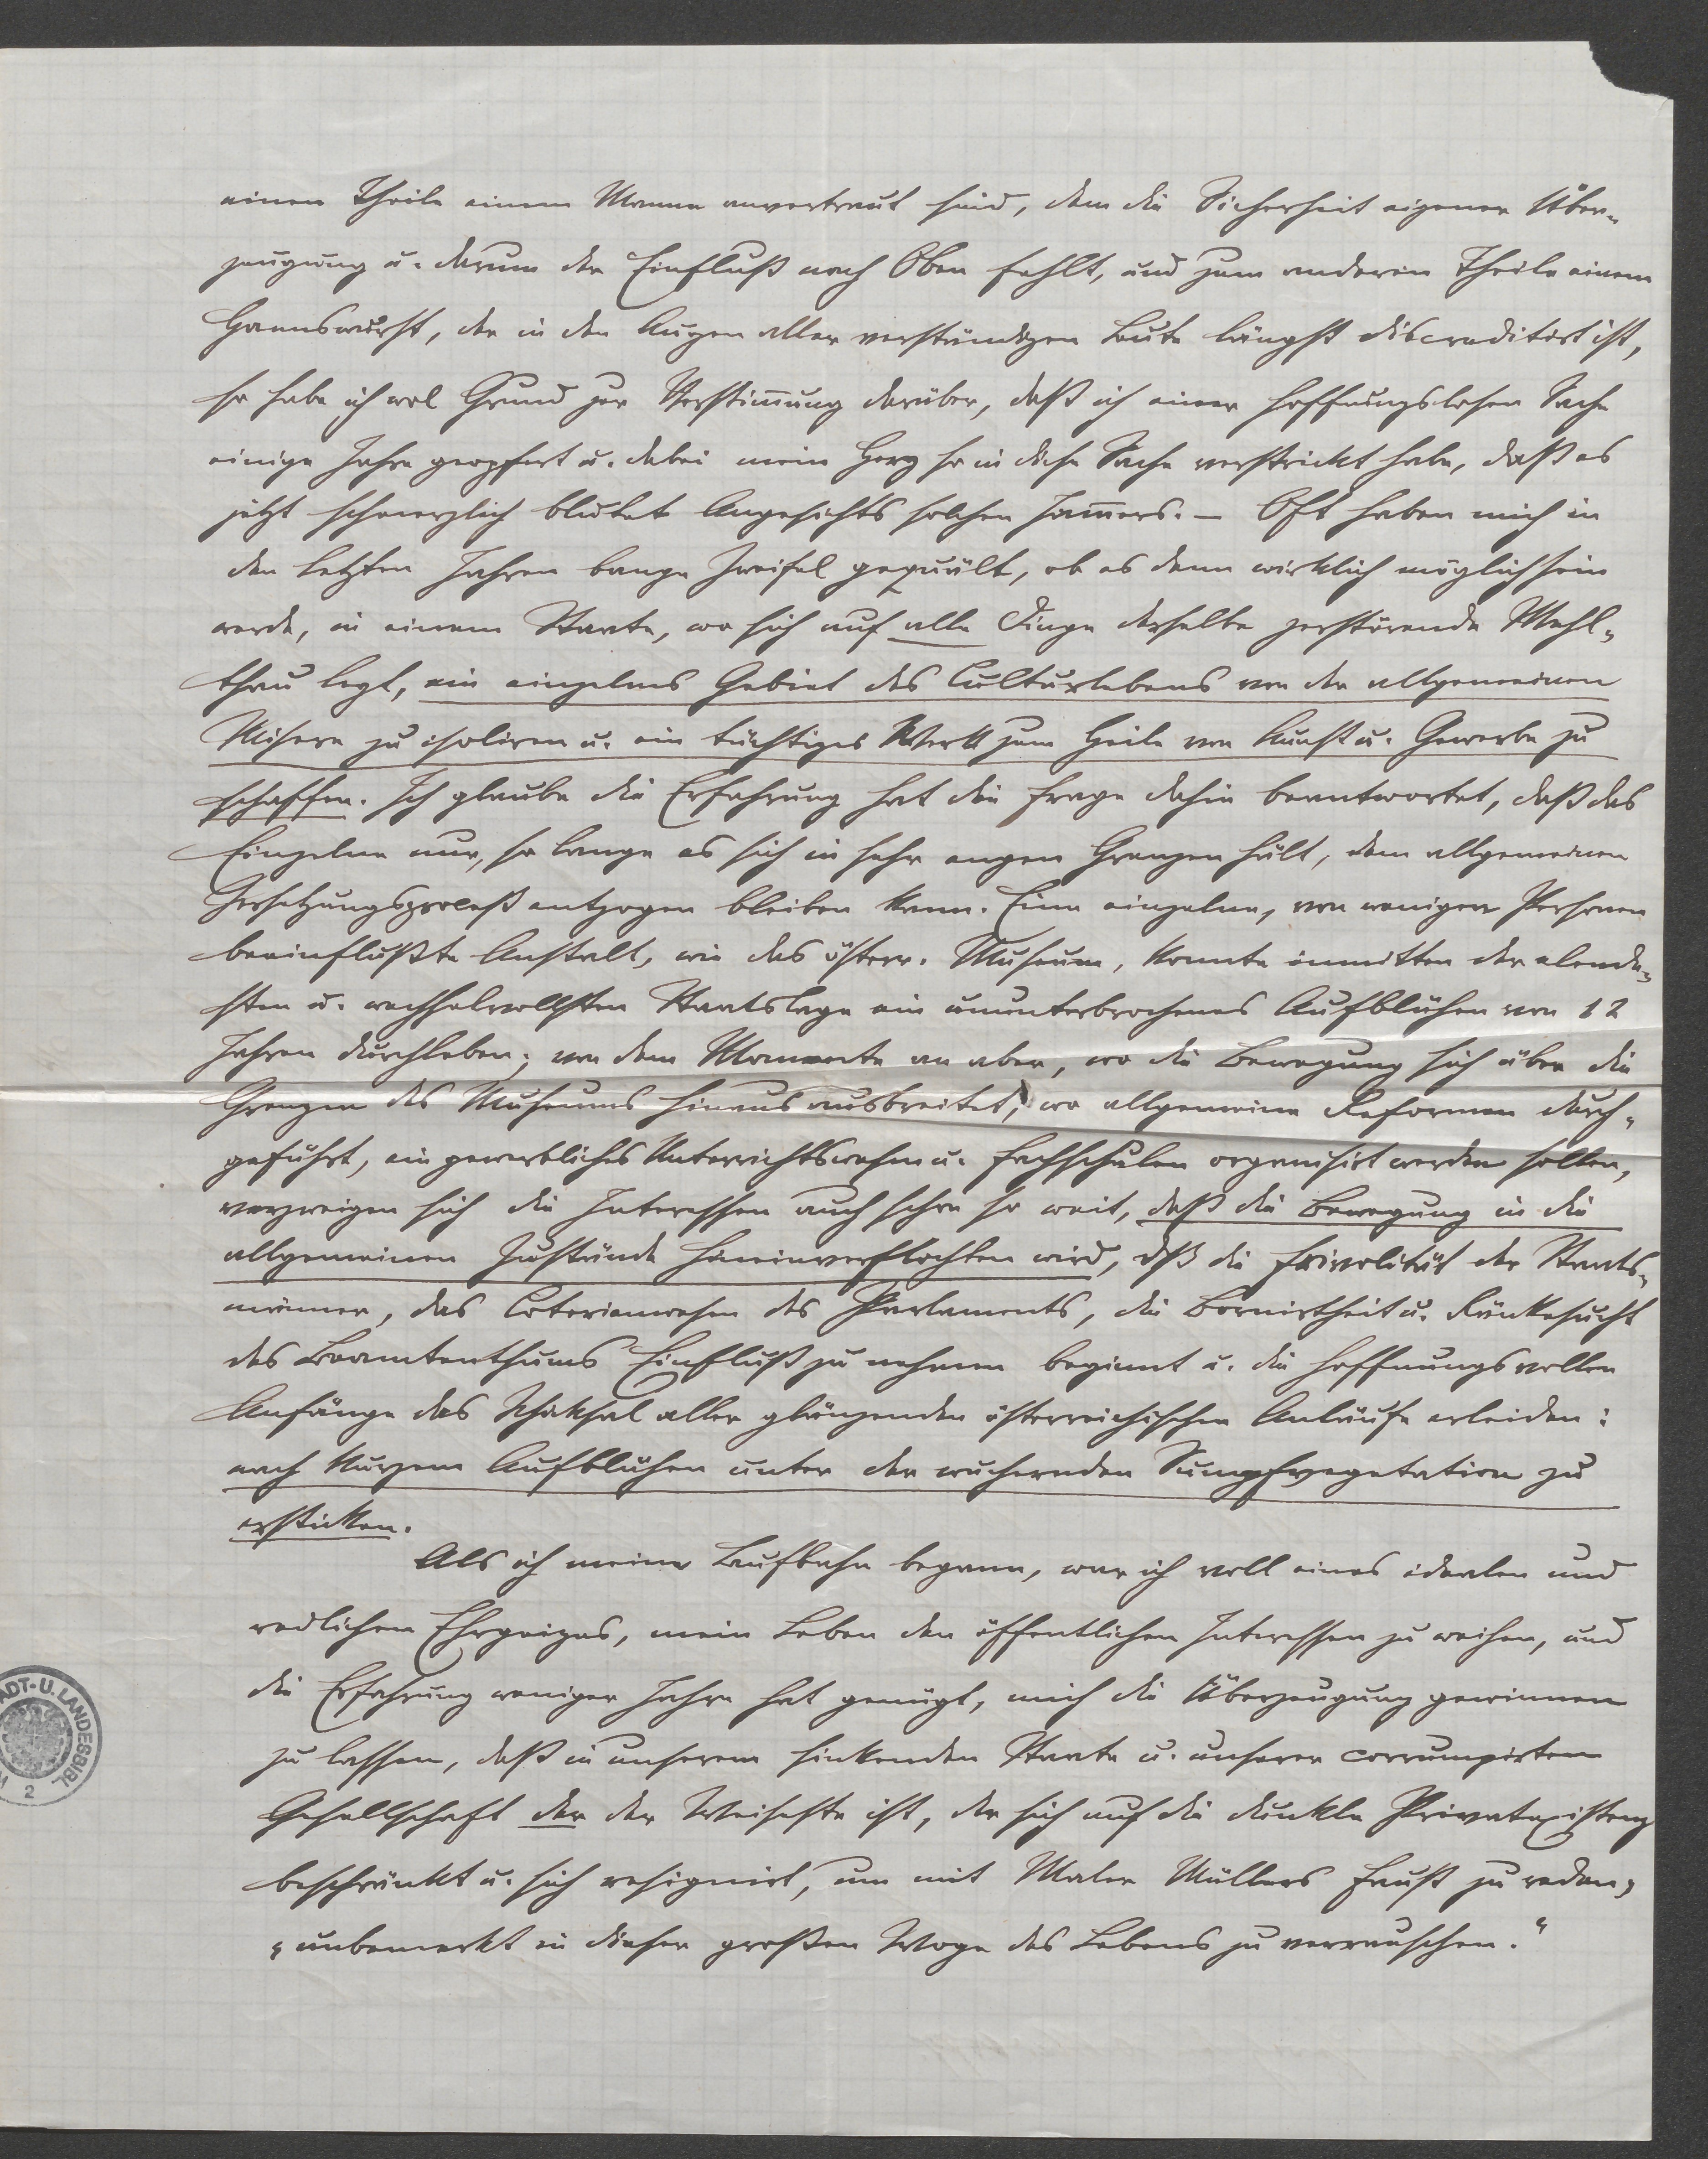 einen Theile einem Manne anvertraut sind, dem die Sicherheit eigener Über-
zeugung u. darum der Einfluß nach Oben fehlt, und zum anderen Theile einem
Hannswurst, der in den Augen aller verständigen Leute längst discreditirt ist,
so habe ich wol Grund zur Verstim̄ung darüber, daß ich einer hoffnungslosen Sache
einige Jahre geopfert u. dabei mein Herz so in diese Sache verstrickt habe, daß es
jetzt schmerzlich blutet Angesichts solchen Jam̄ers. – Oft haben mich in
den letzten Jahren bange Zweifel gequält, ob es denn wirklich möglich sein
werde, in einem Staate, wo sich auf alle Dinge derselbe zerstörende Mehl-
thau legt, ein einzelnes Gebiet des Culturlebens von der allgemeinen
Misere zu isoliren u. ein tüchtiges Werk zum Heile von Kunst u. Gewerbe zu
schaffen. Ich glaube die Erfahrung hat die Frage dahin beantwortet, daß das
Einzelne nur, so lange es sich in sehr engen Grenzen hält, dem allgemeinen
Zersetzungsproceß entzogen bleiben kann. Eine einzelne, von wenigen Personen
beeinflußte Anstalt, wie das österr. Museum, konnte inmitten der elende-
sten u. wechselvollsten Staatslage ein ununterbrochenes Aufblühen von 12
Jahren durchleben; von dem Momente an aber, wo die Bewegung sich über die
Grenzen des Museums hinaus ausbreitet, wo allgemeine Reformen durch-
geführt, ein gewerbliches Unterrichtswesen u. Fachschulen organisirt werden sollen,
verzweigen sich die Interessen auch schon so weit, daß die Bewegung in die
allgemeinen Zustände hineinverflochten wird, dß die Frivolität der Staats-
männer, das Coterienwesen des Parlaments, die Bornirtheit u. Ränkesucht
des Beamtenthums Einfluß zu nehmen beginnt u. die hoffnungsvollen
Anfänge das Schiksal aller glänzenden österreichischen Anläufe erleiden:
nach kurzem Aufblühen unter der wuchernden Sumpfvegetation zu
ersticken.
Als ich meine Laufbahn begann, war ich voll eines idealen und
redlichen Ehrgeizes, mein Leben den öffentlichen Interessen zu weihen, und
die Erfahrung weniger Jahre hat genügt, mich die Überzeugung gewinnen
zu lassen, daß in unserem sinkenden Staate u. unserer corrumpirten
Gesellschaft der der Weiseste ist, der sich auf die dunkle Privatexistenz
beschränkt u. sich resignirt, um mit Maler Müllers Faust zu reden,
„unbemerkt in dieser großen Woge des Lebens zu verrauschen.“
ADT-U. LANDESBIBL
2